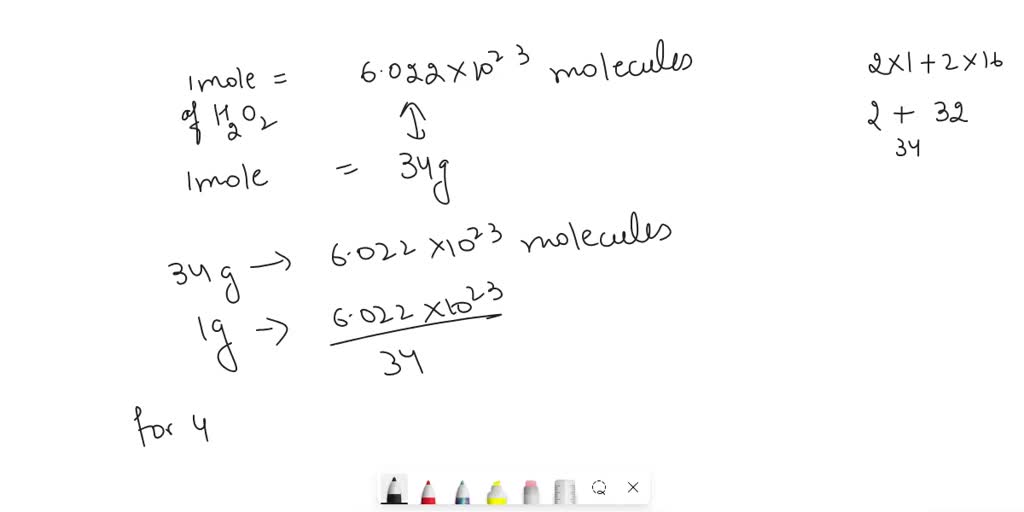 1mole = 6.022×10²³ molecules
of H₂O₂ ↕
1mole = 34g
2×1+2×16
2 + 32
34
34g → 6.022×10²³ molecules
1g → 6.022×10²³
34
for 4